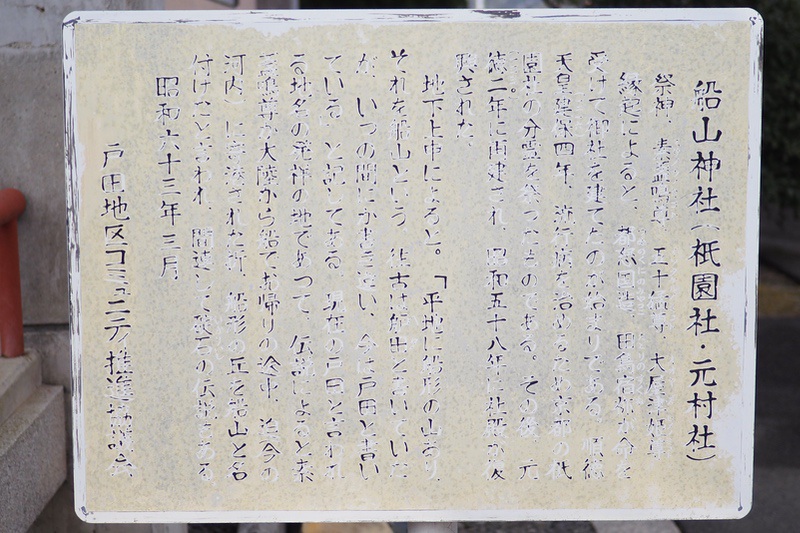 船山神社(祇園社・元村社)
祭神、素盞嗚尊、五十猛尊、大屋津姫尊
縁起によると、 田 命と
受けて御社を建てたのが始まりである。順徳
天皇建保四年、流行病を治めるため京都の祇
園社の分霊を祭つたものである。その後、元
徳二年に再建され、昭和五十八年に社殿が改
築された。
地下上申によると。「平地に船形の山あり、
それを船山という。往古は と書いていた
が、いつの間にか書き違い、今は戸田と書い
ている」と記してある。現在の戸田と言われ
る地名の発祥の地であつて、伝説によると素
盞嗚尊が大陸から船でお帰りの途中、 今の
河内)に された折、船形の丘を船山と名
付けたと言われ、関連して 石の伝説もある
昭和六十三年三月
戸田地区コミュニティ推進協議会